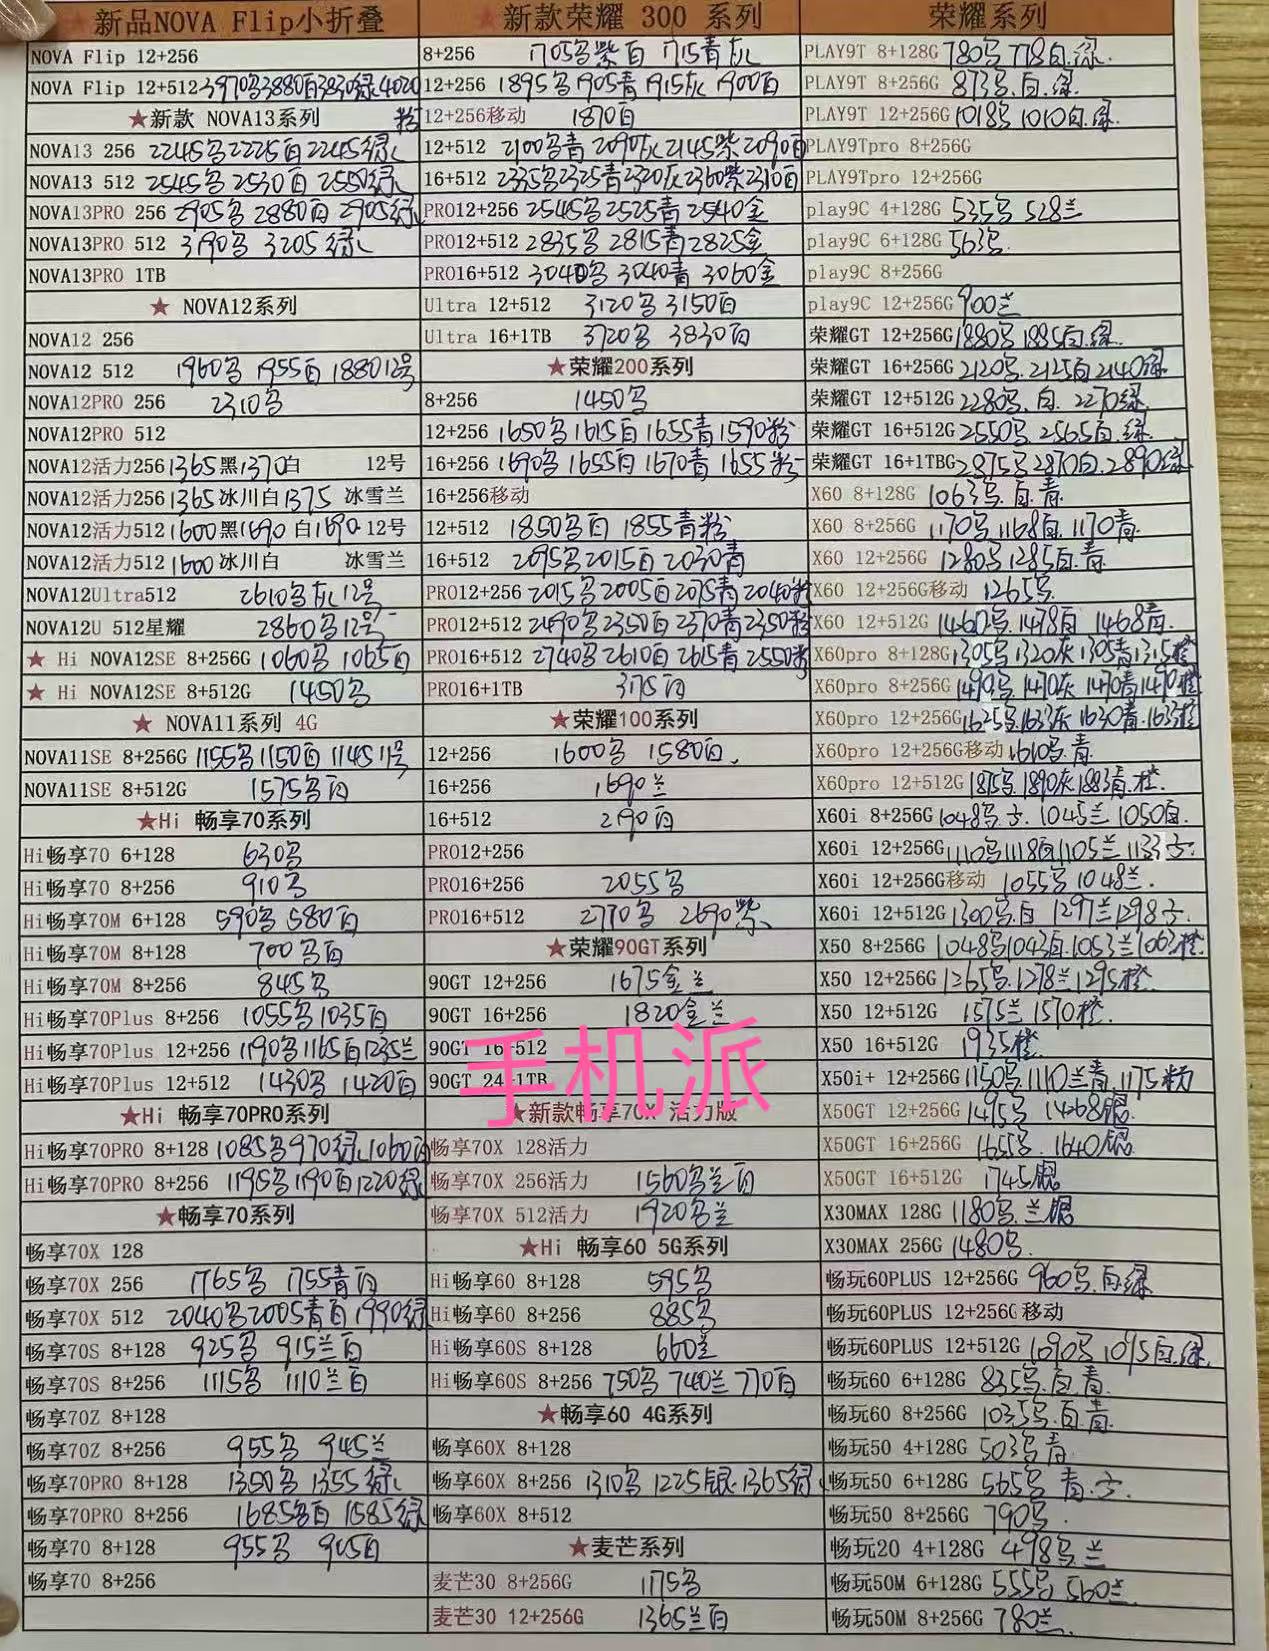 ★新品NOVA Flip小折叠
NOVA Flip 12+256
NOVA Flip 12+512 3970乌3880白3830绿4020粉
★新款 NOVA13系列
NOVA13 256 2245乌2225白2245绿
NOVA13 512 2545乌 2530白 2550绿
NOVA13PRO 256 2905乌 2880白 2905绿
NOVA13PRO 512 3190乌 3205绿
NOVA13PRO 1TB
★ NOVA12系列
NOVA12 256
NOVA12 512 1960乌 1955白 188012号
NOVA12PRO 256 2310乌
NOVA12PRO 512
NOVA12活力256 1365黑1370白 12号
NOVA12活力256 1365冰川白1375 冰雪兰
NOVA12活力512 1600黑1690 白1690 12号
NOVA12活力512 1600冰川白 冰雪兰
NOVA12Ultra512 2610乌灰12号
NOVA12U 512星耀 2860乌12号
★ Hi NOVA12SE 8+256G 1060乌 1065白
★ Hi NOVA12SE 8+512G 1450乌
★ NOVA11系列 4G
NOVA11SE 8+256G 1155乌1150白 114511号
NOVA11SE 8+512G 1575乌白
★Hi 畅享70系列
Hi畅享70 6+128 630乌
Hi畅享70 8+256 910乌
Hi畅享70M 6+128 590乌 580白
Hi畅享70M 8+128 700乌白
Hi畅享70M 8+256 845乌
Hi畅享70Plus 8+256 1055乌1035白
Hi畅享70Plus 12+256 1190乌1165白1235兰
Hi畅享70Plus 12+512 1430乌 1420白
★Hi 畅享70PRO系列
Hi畅享70PRO 8+128 1085乌970绿1060白
Hi畅享70PRO 8+256 1195乌1190白1220绿
★畅享70系列
畅享70X 128
畅享70X 256 1765乌 1755青白
畅享70X 512 2040乌2005青白1990绿
畅享70S 8+128 925乌 915兰白
畅享70S 8+256 1115乌 1110兰白
畅享70Z 8+128
畅享70Z 8+256 955乌 945兰
畅享70PRO 8+128 1350乌 1355绿
畅享70PRO 8+256 1685乌白 1585绿
畅享70 8+128 955乌 905白
畅享70 8+256
★新款荣耀 300 系列
8+256 1705乌紫白 1715青灰
12+256 1895乌1905青1915灰1900白
12+256移动 1870白
12+512 2100乌青 2090灰2145紫2090白
16+512 2335乌2325青2320灰2360紫2310白
PRO12+256 2545乌2525青 2540金
PRO12+512 2835乌 2815青2825金
PRO16+512 3040乌 3040青 3060金
Ultra 12+512 3120乌 3150白
Ultra 16+1TB 3720乌 3830白
★荣耀200系列
8+256 1450乌
12+256 1650乌1615白1655青1590粉
16+256 1690乌1655白1670青 1655粉
16+256移动
12+512 1850乌白 1855青粉
16+512 2095乌2015白2030青
PRO12+256 2015乌2005白2075青2040粉
PRO12+512 2490乌2350白2370青2350粉
PRO16+512 2740乌2610白2615青2550粉
PRO16+1TB 3175白
★荣耀100系列
12+256 1600乌 1580白.
16+256 1690兰
16+512 2190白
PRO12+256
PRO16+256 2055乌
PRO16+512 2770乌 2690紫
★荣耀90GT系列
90GT 12+256 1675金兰
90GT 16+256 1820金兰
90GT 16+512
90GT 24+1TB
★新款畅享70X 活力版
畅享70X 128活力
畅享70X 256活力 1560乌兰白
畅享70X 512活力 1920乌兰
★Hi 畅享60 5G系列
Hi畅享60 8+128 595乌
Hi畅享60 8+256 885乌
Hi畅享60S 8+128 660兰
Hi畅享60S 8+256 750乌 740兰 770白
★畅享60 4G系列
畅享60X 8+128
畅享60X 8+256 1310乌 1225银 1365绿
畅享60X 8+512
★麦芒系列
麦芒30 8+256G 1175乌
麦芒30 12+256G 1365兰白
荣耀系列
PLAY9T 8+128G 780乌 778白.绿.
PLAY9T 8+256G 873乌.白.绿.
PLAY9T 12+256G 1018乌 1010白.绿.
PLAY9Tpro 8+256G
PLAY9Tpro 12+256G
play9C 4+128G 535乌 528兰
play9C 6+128G 563乌.
play9C 8+256G
play9C 12+256G 900兰
荣耀GT 12+256G 1880乌 1885白.绿.
荣耀GT 16+256G 2120乌.2125白2140绿
荣耀GT 12+512G 2280乌.白. 2270绿
荣耀GT 16+512G 2550乌.2565白.绿.
荣耀GT 16+1TBG 2875乌2870白.2890绿
X60 8+128G 1063乌.白.青.
X60 8+256G 1170乌.1168白.1170青.
X60 12+256G 1280乌1285白.青.
X60 12+256G移动 1265乌.
X60 12+512G 1460乌.1478白. 1468青.
X60pro 8+128G 1305乌1320灰1305青1315橙
X60pro 8+256G 1490乌.1470灰 1470青1470橙
X60pro 12+256G 1625乌.1633灰 1630青.1633橙
X60pro 12+256G移动 1610乌.青.
X60pro 12+512G 1875乌.1890灰1883青.橙.
X60i 8+256G 1048乌.子. 1045兰 1050白.
X60i 12+256G 1110乌1118白1105兰 1133子.
X60i 12+256G移动 1055乌1048兰.
X60i 12+512G 1300乌.白 1297兰1298子.
X50 8+256G 1048乌1043白.1053兰1063橙.
X50 12+256G 1265乌.1278兰1295橙.
X50 12+512G 1575兰 1570橙.
X50 16+512G 1935橙.
X50i+ 12+256G 1150乌.1110兰青.1175粉
X50GT 12+256G 1495乌. 1468银.
X50GT 16+256G 1655乌. 1640银.
X50GT 16+512G 1745银
X30MAX 128G 1180乌.兰银
X30MAX 256G 1480乌.
畅玩60PLUS 12+256G 960乌.白绿
畅玩60PLUS 12+256G 移动
畅玩60PLUS 12+512G 1090乌 1095白.绿.
畅玩60 6+128G 835乌.白青.
畅玩60 8+256G 1035乌.白.青.
畅玩50 4+128G 503乌青
畅玩50 6+128G 565乌 青.子.
畅玩50 8+256G 790乌.
畅玩20 4+128G 498乌兰
畅玩50M 6+128G 555乌 560兰.
畅玩50M 8+256G 780兰.
手机派